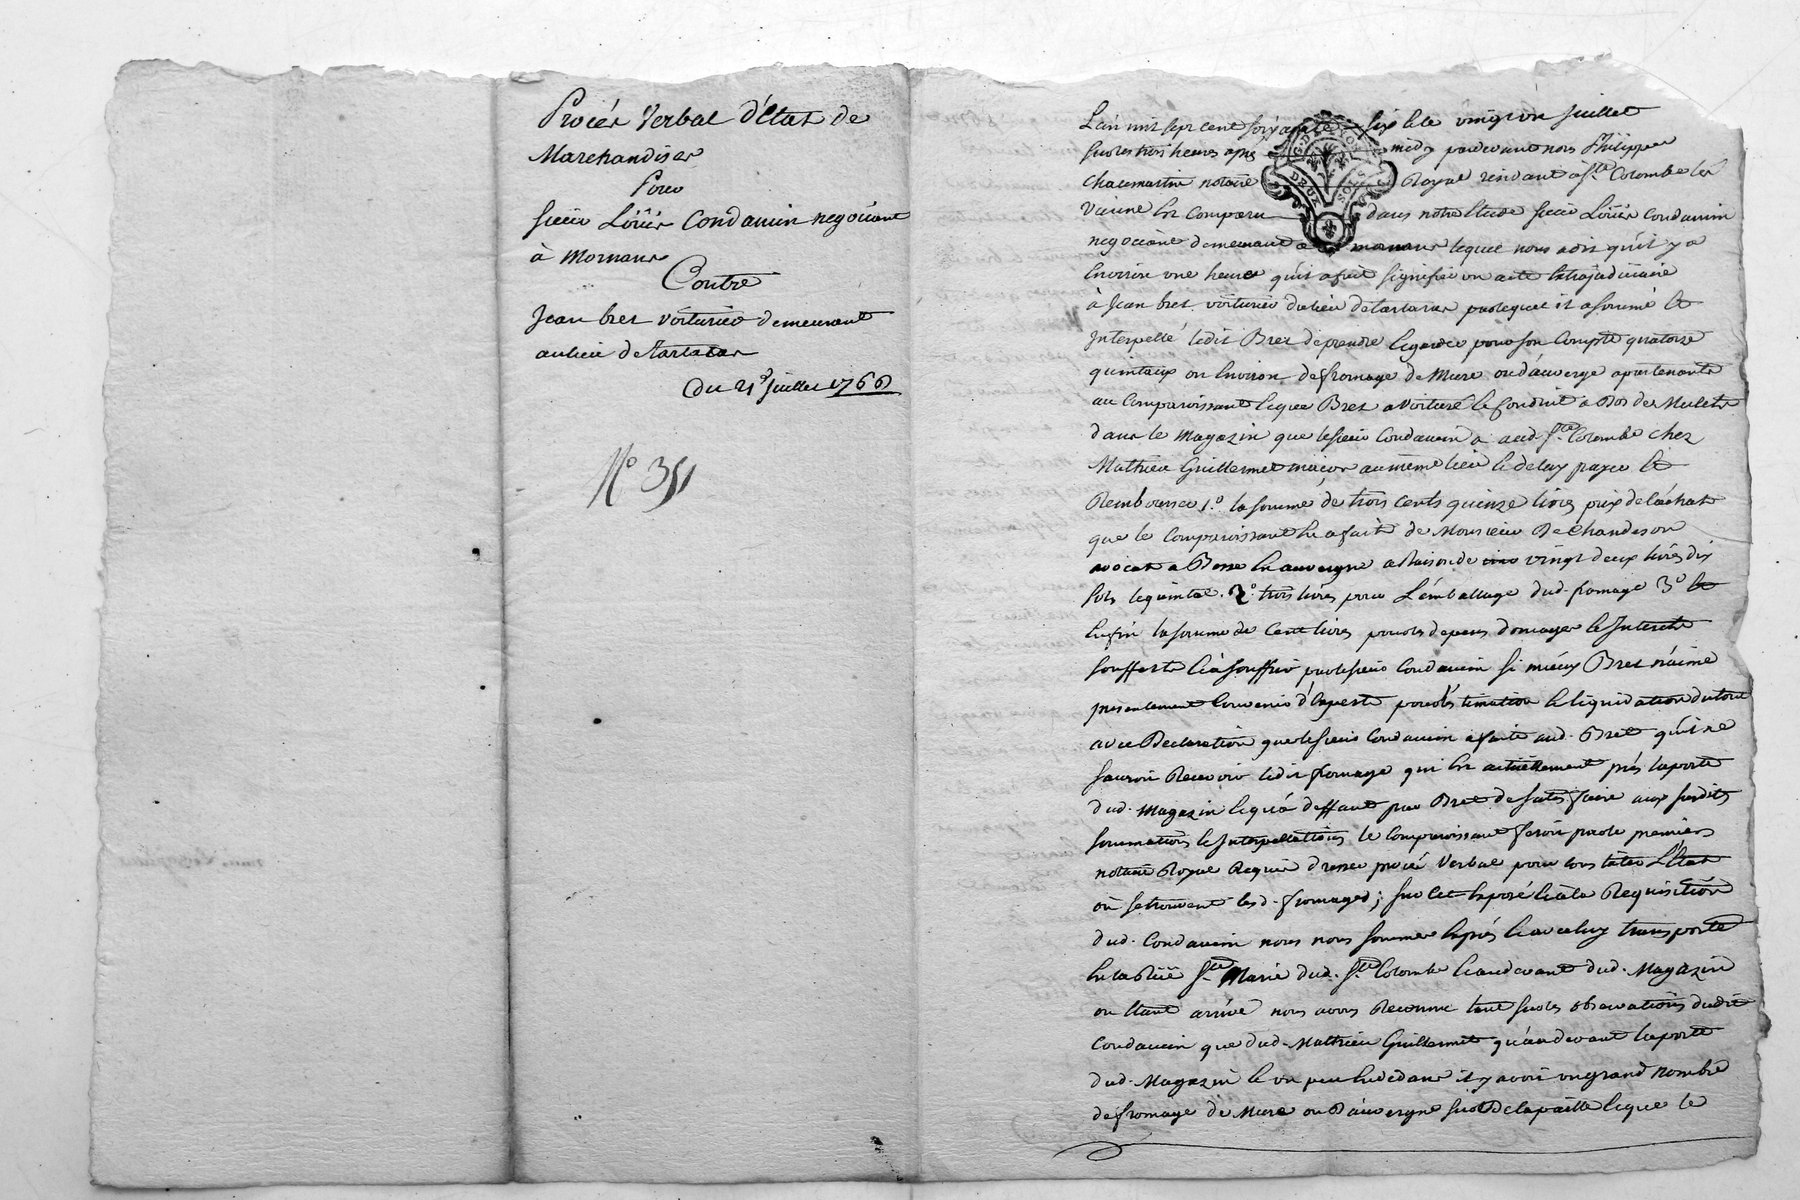 Procés Verbal d'Etat de
Marchandises
Pour
sieur Loüis Condamin negotiant
à Mornant
Contre
Jean bret voiturier demeurant
au lieu de Tartaras
Du 21e Juillet 1766
N° 351
L'an mil sept cent soixante six et le vingt un Juillet
sur les trois heures aprés midy pardevant nous Philippe
Chalemartin notaire Royal résidant à Ste Colombe les
Vienne est comparu dans notre Etude sieur Loüis Condamin
negociant demeurant a Mornant lequel nous a dit qu'il y a
Environ une heure qu'il a fait signifier un acte Extrajudiciaire
à Jean bret voiturier du lieu de tartaras par lequel il a sommé et
Interpellé ledit Bret de prendre et garder pour son Compte quatorze
quintaux ou Environ de fromage de Mure ou d'auvergne apartenants
au Comparoissant lequel Bret a voituré et conduit a Dos de Mulets
dans le Magazin que le sieur Condamin a aud. Ste Colombe chez
Mathieu Guillermet maçon au même lieu et de luy payer et
Rembourser 1° la somme de trois cents quinze livres prix de l'achat
que le Comparoissant En a fait de Monsieur De Chandeson
avocat a Besse En auvergne a Raison de vingt deux livres dix
sols le quintal. 2° trois livres pour L'emballage dud. fromage 3° et
Enfin la somme de Cent livres pour les depens domages et Interests
soufferts et à souffrir par le sieur Condamin si mieux Bret n'aime
presentement Convenir d'Experts pour l'Estimation et liquidation du tout
avec Declaration que le sieur Condamin a faite aud. Bret qu'il ne
sauroit Recevoir ledit fromage qui est actuellement prés la porte
dud. Magazin et qu'á deffaut par Bret de satisfaire aux susdites
sommations et Interpellations le Comparoissant feroit par le premier
notaire Royal Requis dresser procés Verbal pour constater L'Etat
où se trouvent lesd. fromages; sur Cet Exposé et à la Requisition
dud. Condamin nous nous sommes Exprés et avec luy transporté
En la Rüe Ste Marie dud. Ste Colombe et au devant dud. Magazin
ou Etant arrivé nous avons Reconnu tant sur les observations dudit
Condamin que dud. Mathieu Guillermet qu'au devant la porte
dud. Magazin et un peu En dedans il y avoit un grand nombre
de fromage de Mure ou D'auvergne sur De la paille lequel le